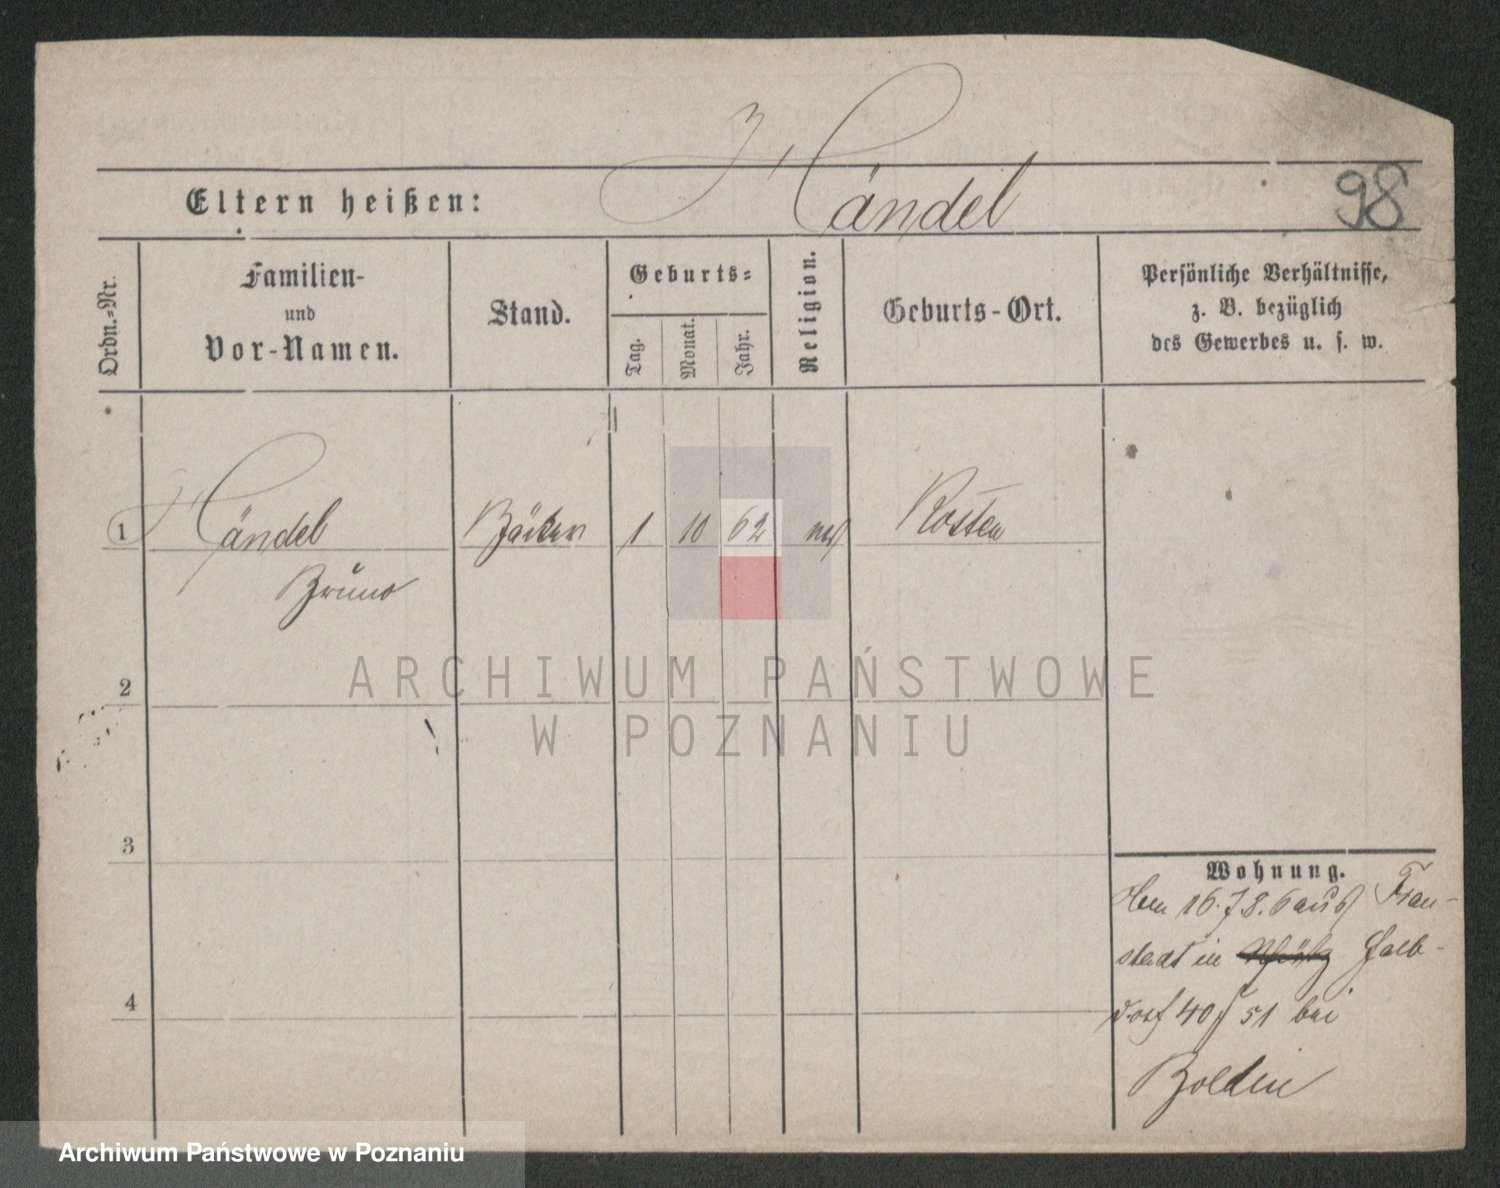 Händel
98
Eltern heißen:
Ordn.-Nr.
Familien-
und
Vor-Namen.
Stand.
Geburts-
Tag.
Monat.
Jahr.
Religion.
Geburts-Ort.
Persönliche Verhältnisse,
z. B. bezüglich
des Gewerbes u. s. w.
1 Händel Bäcker 1 10 62 Kosten
Bruno
2
3
4
ARCHIWUM PAŃSTWOWE
W POZNANIU
Wohnung.
16.7 8.6 aus Frau-
stadt in Halb-
dorf 40/51 bei
Boldin
Archiwum Państwowe w Poznaniu